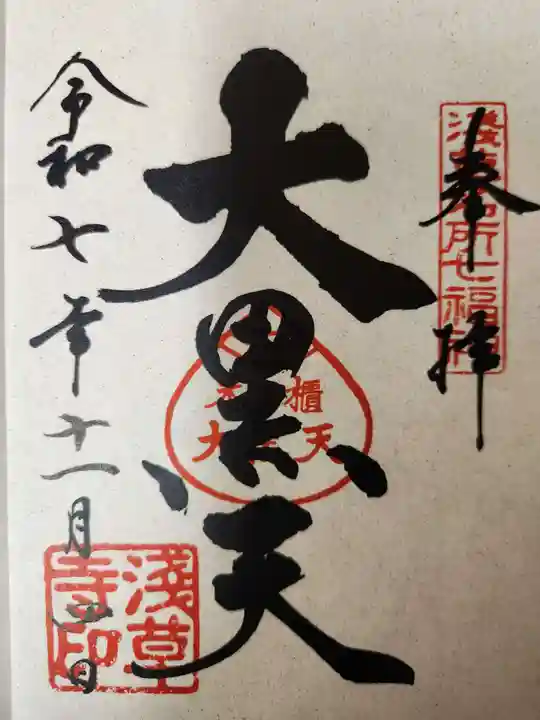 奉拝
浅草名所七福神
大黒天
令和七年十一月四日
淺草寺印